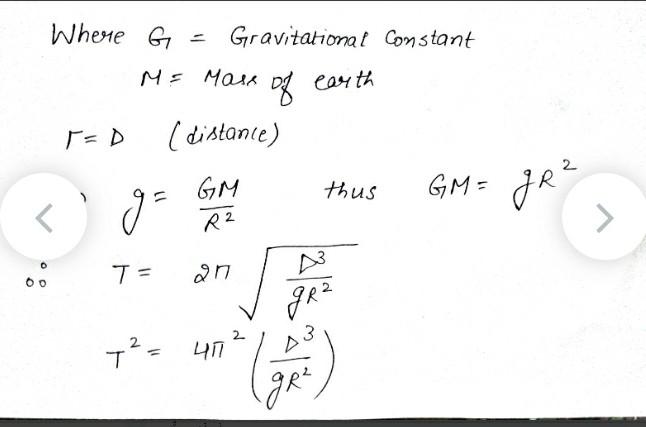 Where G = Gravitational Constant
M = Mass of earth
r = D (distance)
g = GM/R² thus GM = gR²
∴ T = 2π √(D³/gR²)
T² = 4π² (D³/gR²)